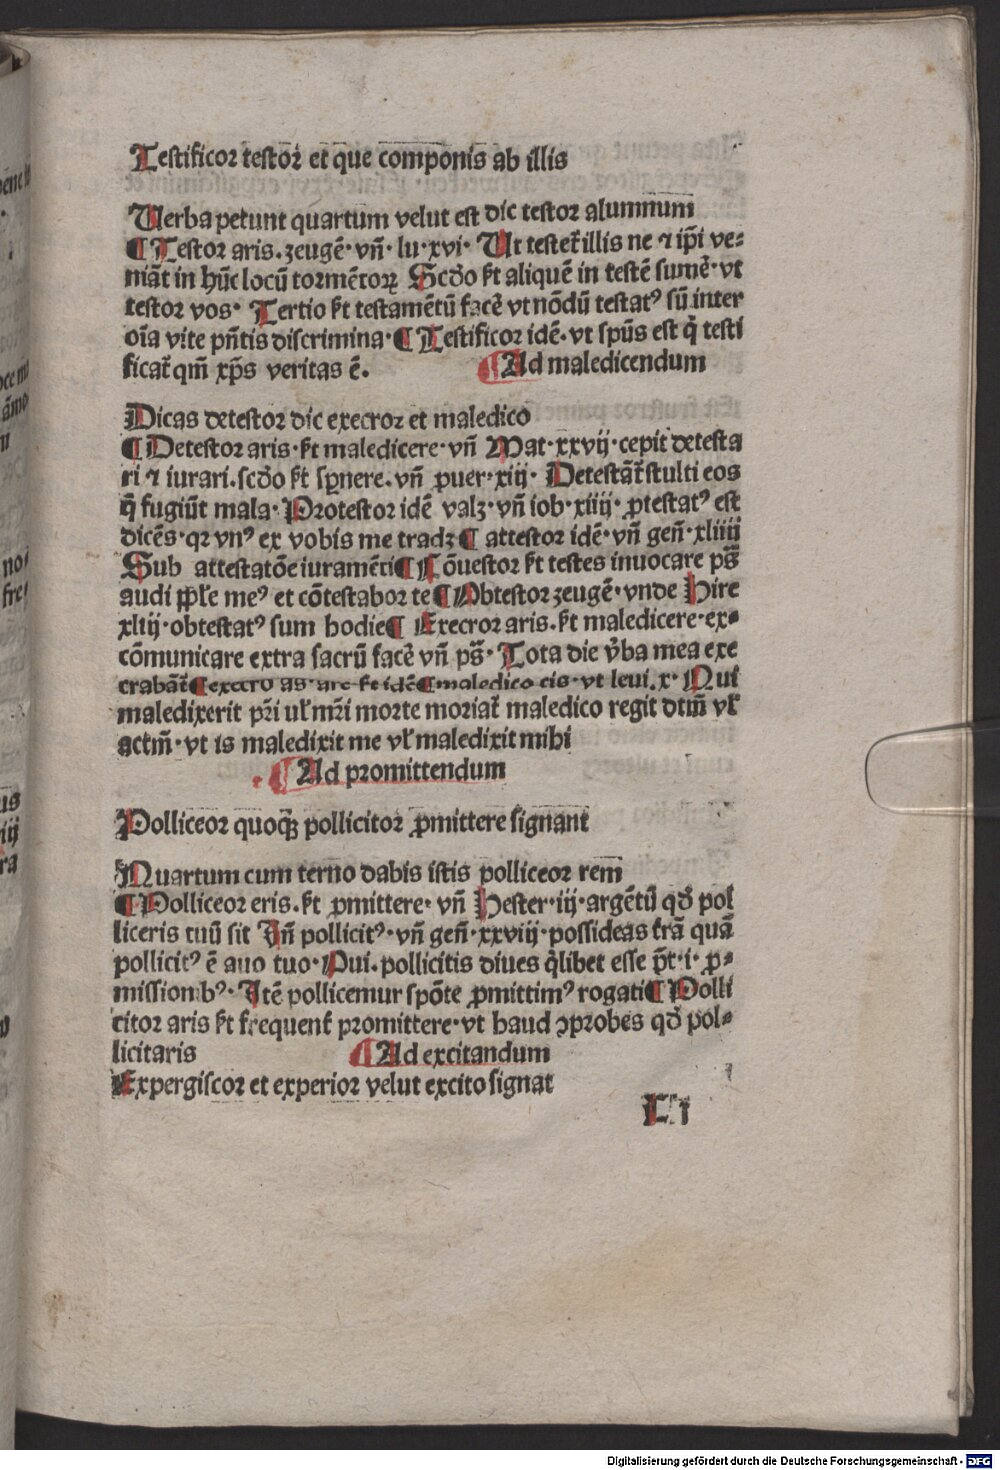 Testificor testor et que componis ab illis
Verba petunt quartum velut est dic testor alumnum
¶ Testor aris. zeugē· vn̄· lu· xvi· Ut testet᷑ illis ne ⁊ ip̄i ve⸗
niāt in hūc locū tormētoꝝ Scd̄o ſt aliquē in testē sumē· vt
testor vos· Tertio ſt testamētū facē vt nōdū testatꝰ sū inter
oīa vite pn̄tis discrimina· ¶ Testificor idē· vt sp̄us est q̄ testi
ficat᷑ qm̄ xp̄s veritas ē. ¶ Ad maledicendum
Dicas detestor dic execror et maledico
¶ Detestor aris· ſt maledicere· vn̄ Mat· xxvij· cepit detesta
ri ⁊ iurari. scd̄o ſt sp̲nere. vn̄ ꝓuer· xiij· Detestāt᷑ stulti eos
q̄ fugiūt mala· Protestor idē valꝫ· vn̄ iob· xiiij· ꝓtestatꝰ est
dicēs· qꝛ vnꝰ ex vobis me tradꝫ ¶ attestor idē· vn̄ gen̄· xliiij
Sub attestatōe iuramēti ¶ Cōuestor ſt testes inuocare ps̄
audi pp̄le meꝰ et cōtestabor te ¶ Obtestor zeugē· vnde Hire
xliij· obtestatꝰ sum hodie ¶ Execror aris. ſt maledicere· ex⸗
cōmunicare extra sacrū facē vn̄ ps̄· Tota die v̄ba mea exe
crabāt᷑ ¶ execro as· are ſt idē ¶ maledico cis· vt leui. x· Qui
maledixerit pr̄i ul̄ mr̄i morte moriat᷑ maledico regit dtm̄ vl̄
actm̄· vt is maledixit me vl̄ maledixit mihi
¶ Ad promittendum
Polliceor quoqꝫ pollicitor ꝓmittere signant
Quartum cum terno dabis istis polliceor rem
¶ Polliceor eris. ſt ꝓmittere· vn̄ Hester· iij· argētū qd̄ pol
liceris tuū sit In̄ pollicitꝰ· vn̄ gen̄· xxviij· possideas trā quā
pollicitꝰ ē auo tuo· Oui. pollicitis diues q̄libet esse pt̄· i· ꝓ⸗
missionibꝰ· Itē pollicemur spōte ꝓmittimꝰ rogati ¶ Polli
citor aris ſt frequent᷑ promittere· vt haud ꝓprobes qd̄ pol⸗
licitaris ¶ Ad excitandum
Expergiscor et experior velut excito signat
Digitalisierung gefördert durch die Deutsche Forschungsgemeinschaft - DFG